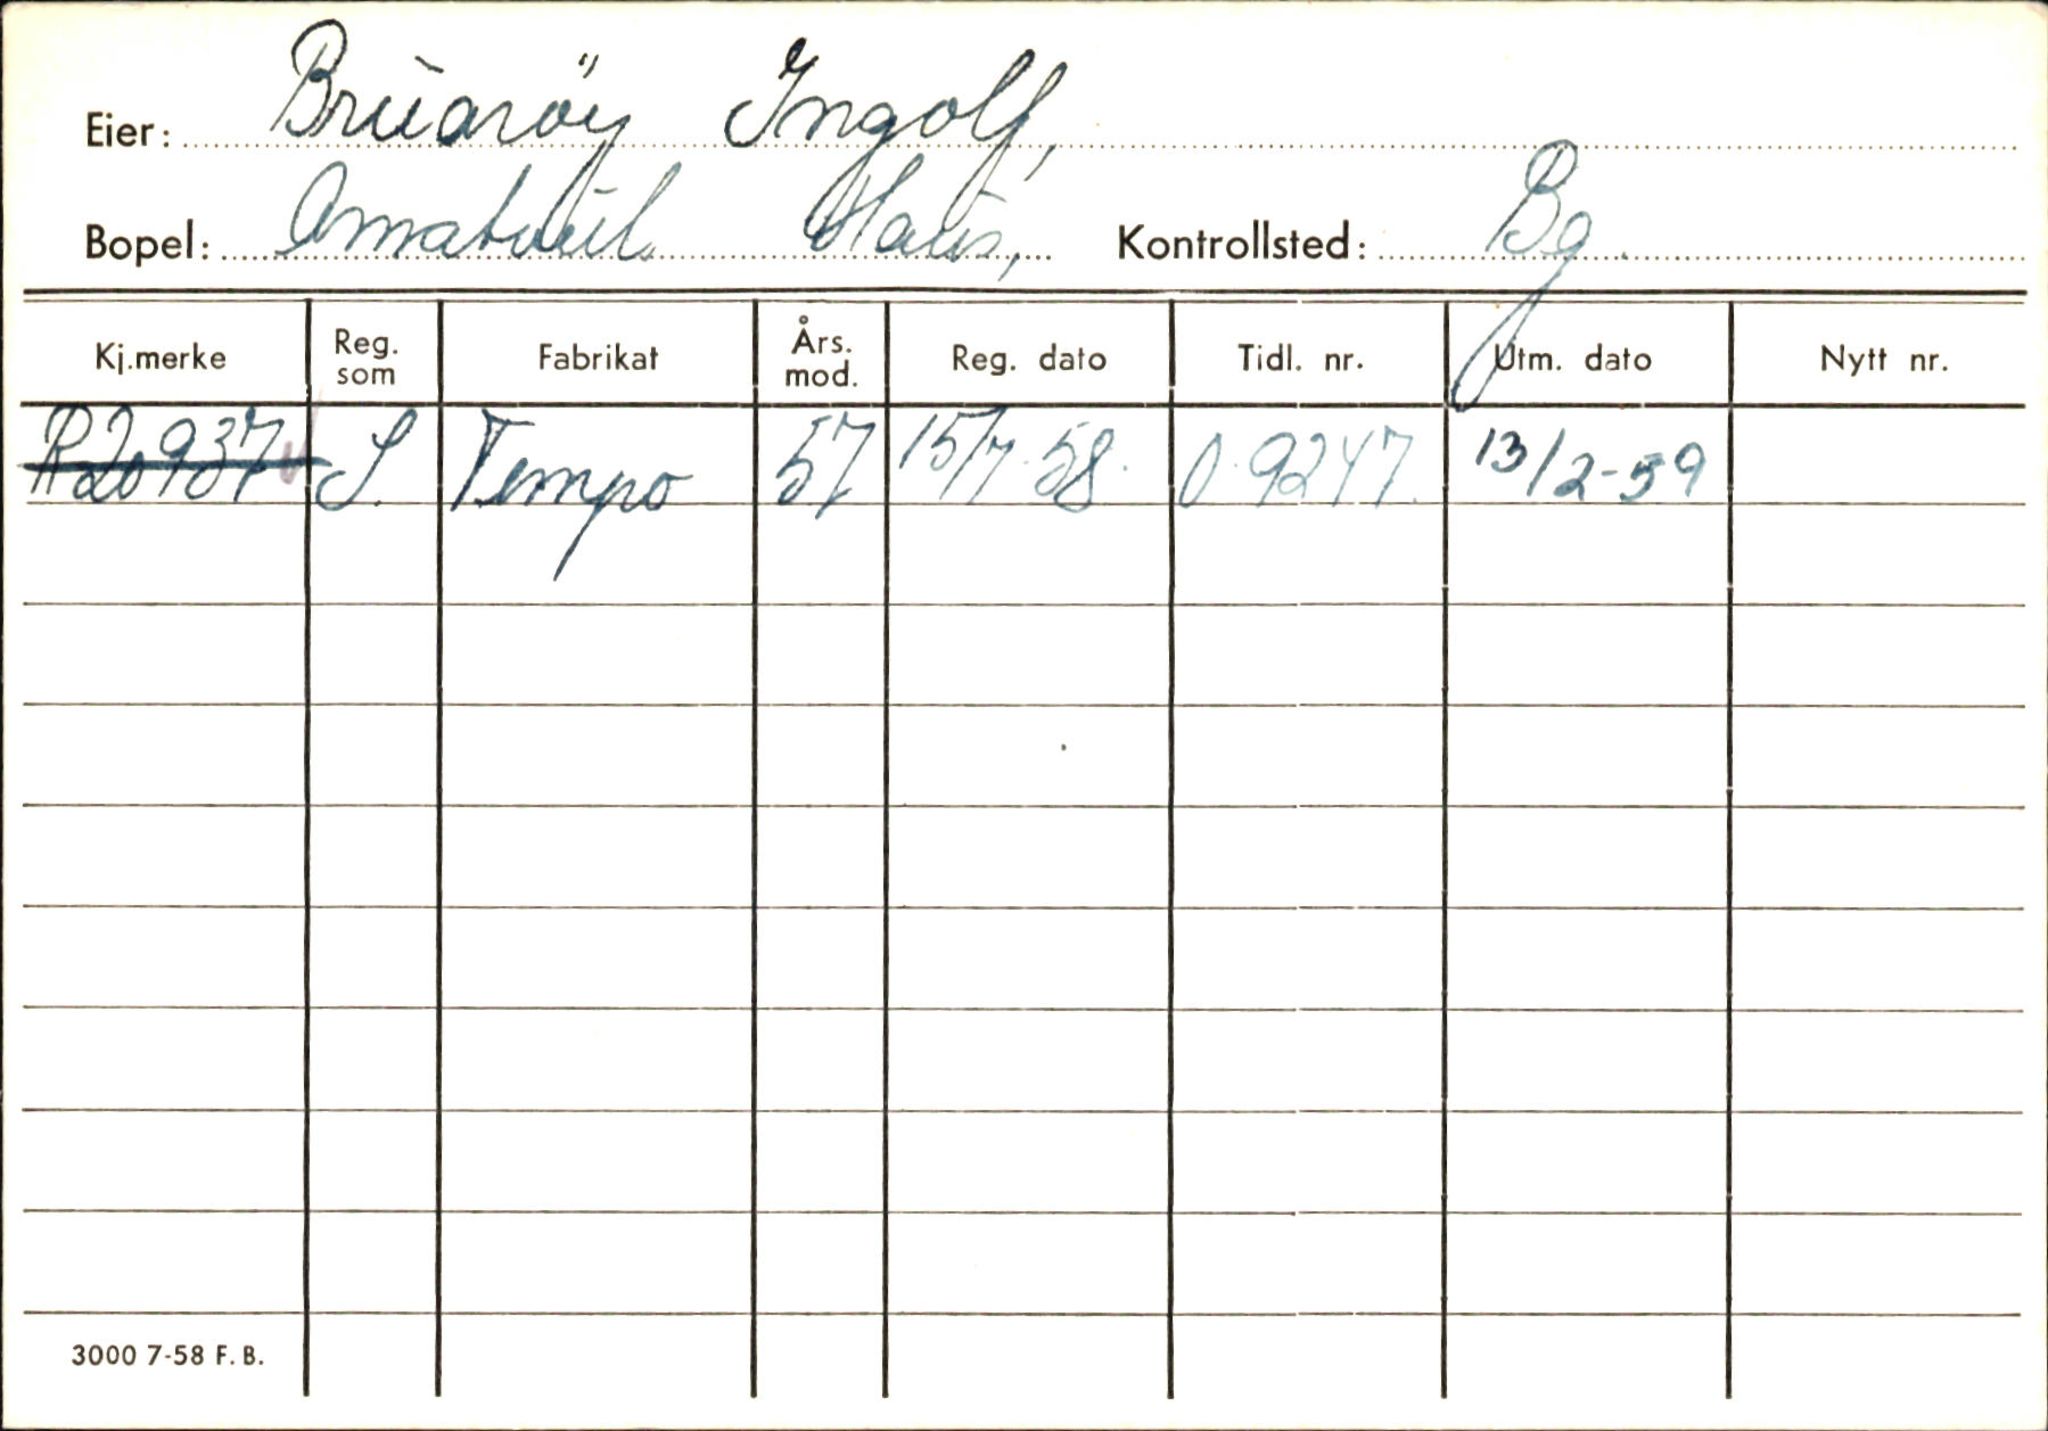 Eier: Bruarøy Ingolf,
Bopel: Haus, Kontrollsted: Bg.
Kj.merke Reg. som Fabrikat Års. mod. Reg. dato Tidl. nr. Utm. dato Nytt nr.
R20937 S. Tempo 57 15/7-58. O-9247. 13/2-59
3000 7-58 F. B.